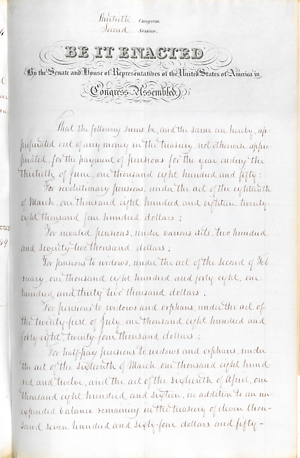 Thirtieth Congress
Second Session.
BE IT ENACTED
By the Senate and House of Representatives of the United States of America in
Congress Assembled,
That the following sums be, and the same are hereby, ap-
propriated out of any money in the treasury not otherwise appro-
priated, for the payment of pensions for the year ending the
thirtieth of June, one thousand eight hundred and fifty:
For revolutionary pensions, under the act of the eighteenth
of March, one thousand eight hundred and eighteen, twenty
eight thousand four hundred dollars;
For invalid pensions, under various acts, two hundred
and seventy-two thousand dollars;
For pensions to widows, under the act of the second of Feb
ruary, one thousand eight hundred and forty eight, one
hundred and thirty two thousand dollars;
For pensions to widows and orphans, under the act of
the twenty-first of July, one thousand eight hundred and
forty eight, twenty four thousand dollars;
For half-pay pensions to widows and orphans, under
the act of the sixteenth of March, one thousand eight hund
red and twelve, and the act of the sixteenth of April, one
thousand eight hundred and sixteen, in addition to an un-
expended balance remaining in the treasury of eleven thou-
sand seven hundred and sixty-four dollars and fifty-